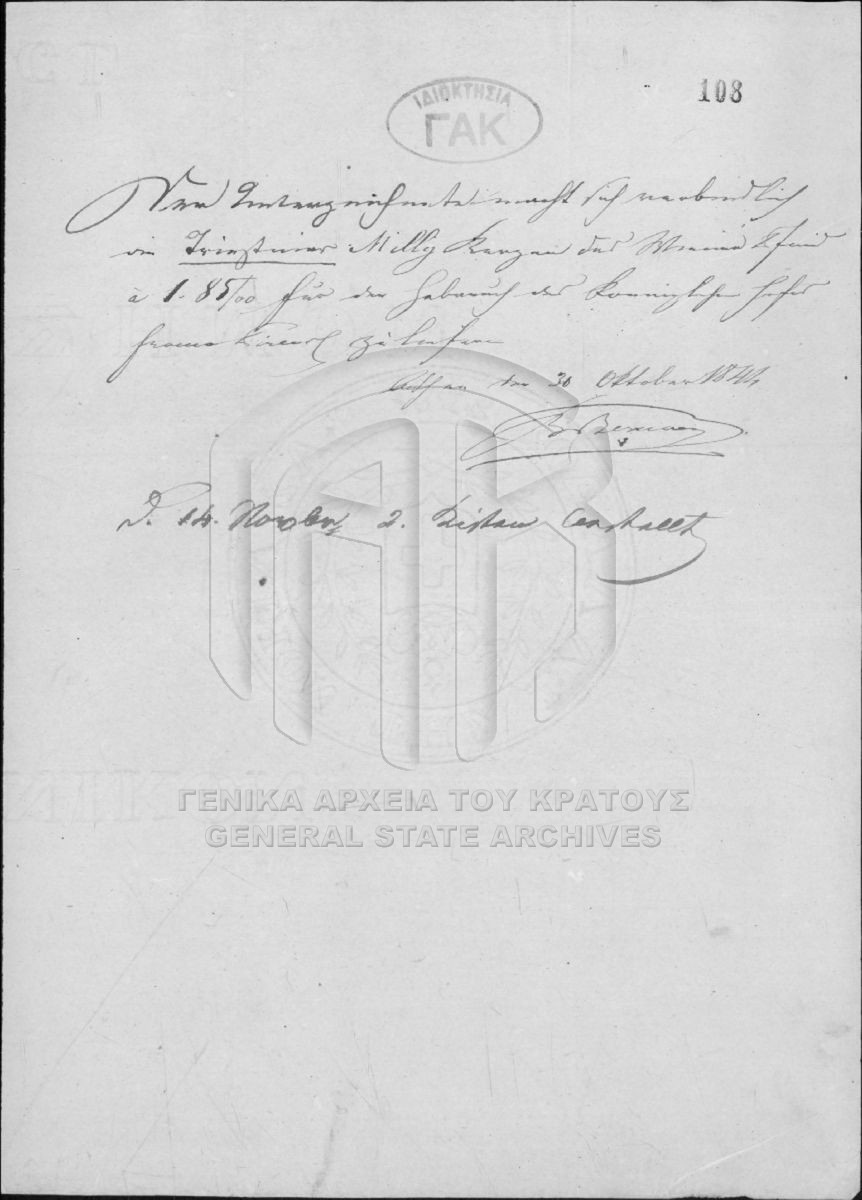 108
ΙΔΙΟΚΤΗΣΙΑ
ΓΑΚ
Der Unterzeichnete macht sich verbindlich
die Triestiner Milly Kerzen das Wiener Pfund
à 1. 85/00 für den Gebrauch des Koeniglichen Hofes
franco zu liefern
Athen den 30 Oktober 1844
D. 14. Novbr 2. Kisten
ΓΕΝΙΚΑ ΑΡΧΕΙΑ ΤΟΥ ΚΡΑΤΟΥΣ
GENERAL STATE ARCHIVES